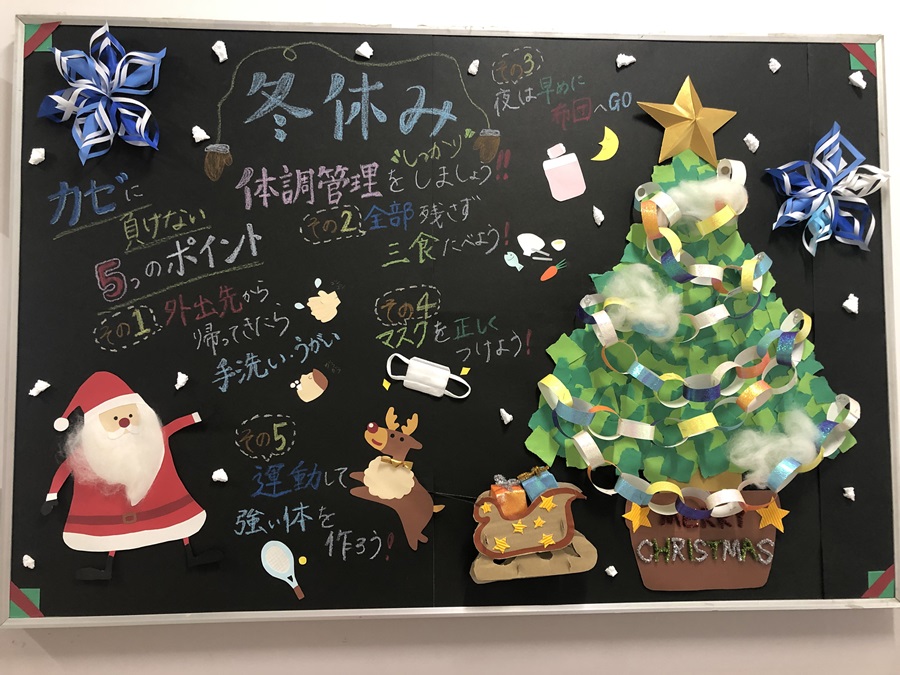 冬休み
体調管理を"しっかり"しましょう!!
カゼに
負けない
5つのポイント
その1 外出先から
帰ってきたら
手洗い・うがい
その2 全部 残さず
三食たべよう!
その3
夜は早めに
布団へGO
その4
マスクを正しく
つけよう!
その5
運動して
強い体を
作ろう!
MERRY
CHRISTMAS